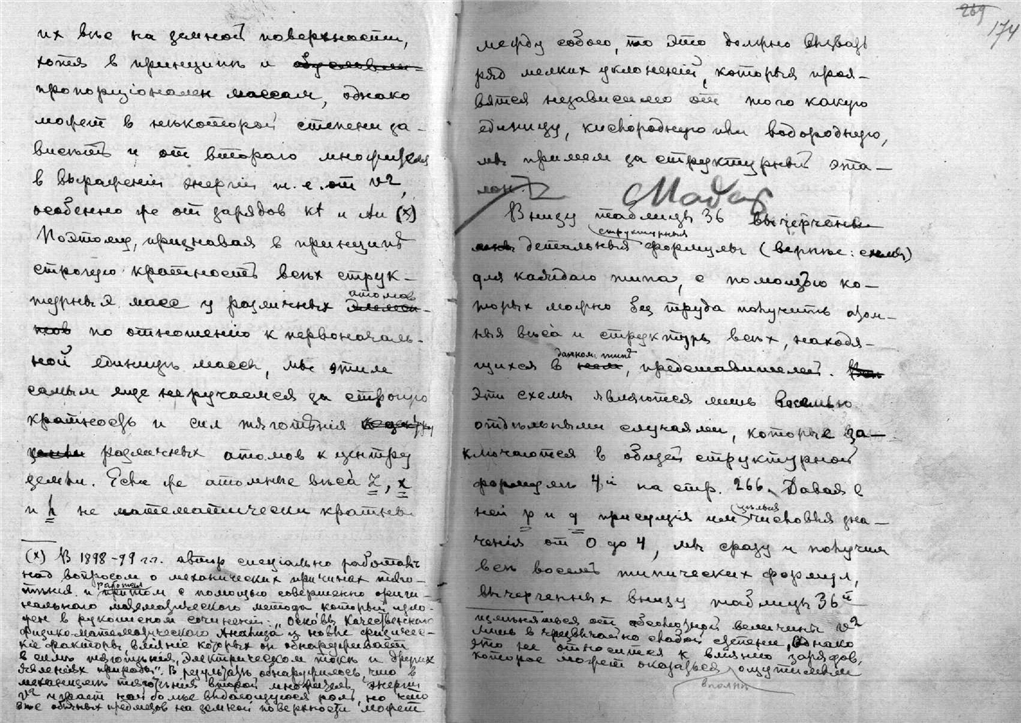 их вѣс на земной поверхности,
хотя в принципѣ и обусловли-
пропорціонален массам, однако
может в нѣкоторой степени за-
висѣть и от второго множителя
в выраженіи энергіи т. е. от v²,
особенно же от зарядов (x)
Поэтому, признавая в принципѣ
строгую кратность всѣх струк-
турных масс у различных атомов
по отношенію к первоначаль-
ной единицѣ массы, мы этим
самым еще не ручаемся за строгую
кратность и сил тяготѣнія
различных атомов к центру
земли. Если же атомные вѣса Z, x
и h не математически кратны
(x) В 1898-99 гг. автор спеціально работал
над вопросом о механических причинах тяго-
тѣнія и работал притом с помощью совершенно ориги-
нального математического метода который изло-
жен в рукописном сочинении: "Основы Качественного
физико-математического Анализа и новые физичес-
кіе факторы, вліяніе которых он обнаруживает
в силѣ тяготѣнія, электрическом токѣ и других
явленіях природы". В результатѣ обнаружилось, что в
механизмѣ тяготѣнія второй множитель энергіи
v² играет наиболѣе выдающуюся роль, но что
вѣс обычных предметов на земной поверхности может
269
174
между собою, то это должно вызвать
ряд мелких уклоненій, которыя проя-
вятся независимо от того какую
единицу, кислородную или водородную,
мы примем за структурный эта-
лон.
Внизу таблицы 36 вычерчены
структурныя
детальныя формулы (вернѣе: схемы)
для каждаго типа, с помощью ко-
торых можно без труда получить атом-
ныя вѣса и структуры всѣх, находя-
щихся в данном типѣ, представителей.
Эти схемы являются лишь восемью
отдѣльными случаями, которые за-
ключаются в общей структурной
формулѣ 4-й на стр. 266. Давая в
ней p и q присущія им цѣлыя числовыя зна-
ченія от 0 до 4, мы сразу и получим
всѣ восемь типических формул,
вычерченных внизу таблицы 36й
измѣняться от абсолютной величины v²
лишь в чрезвычайно слабой степени. Однако
это не относится к вліянію зарядов,
которое может оказаться ощутимым
вполнѣ